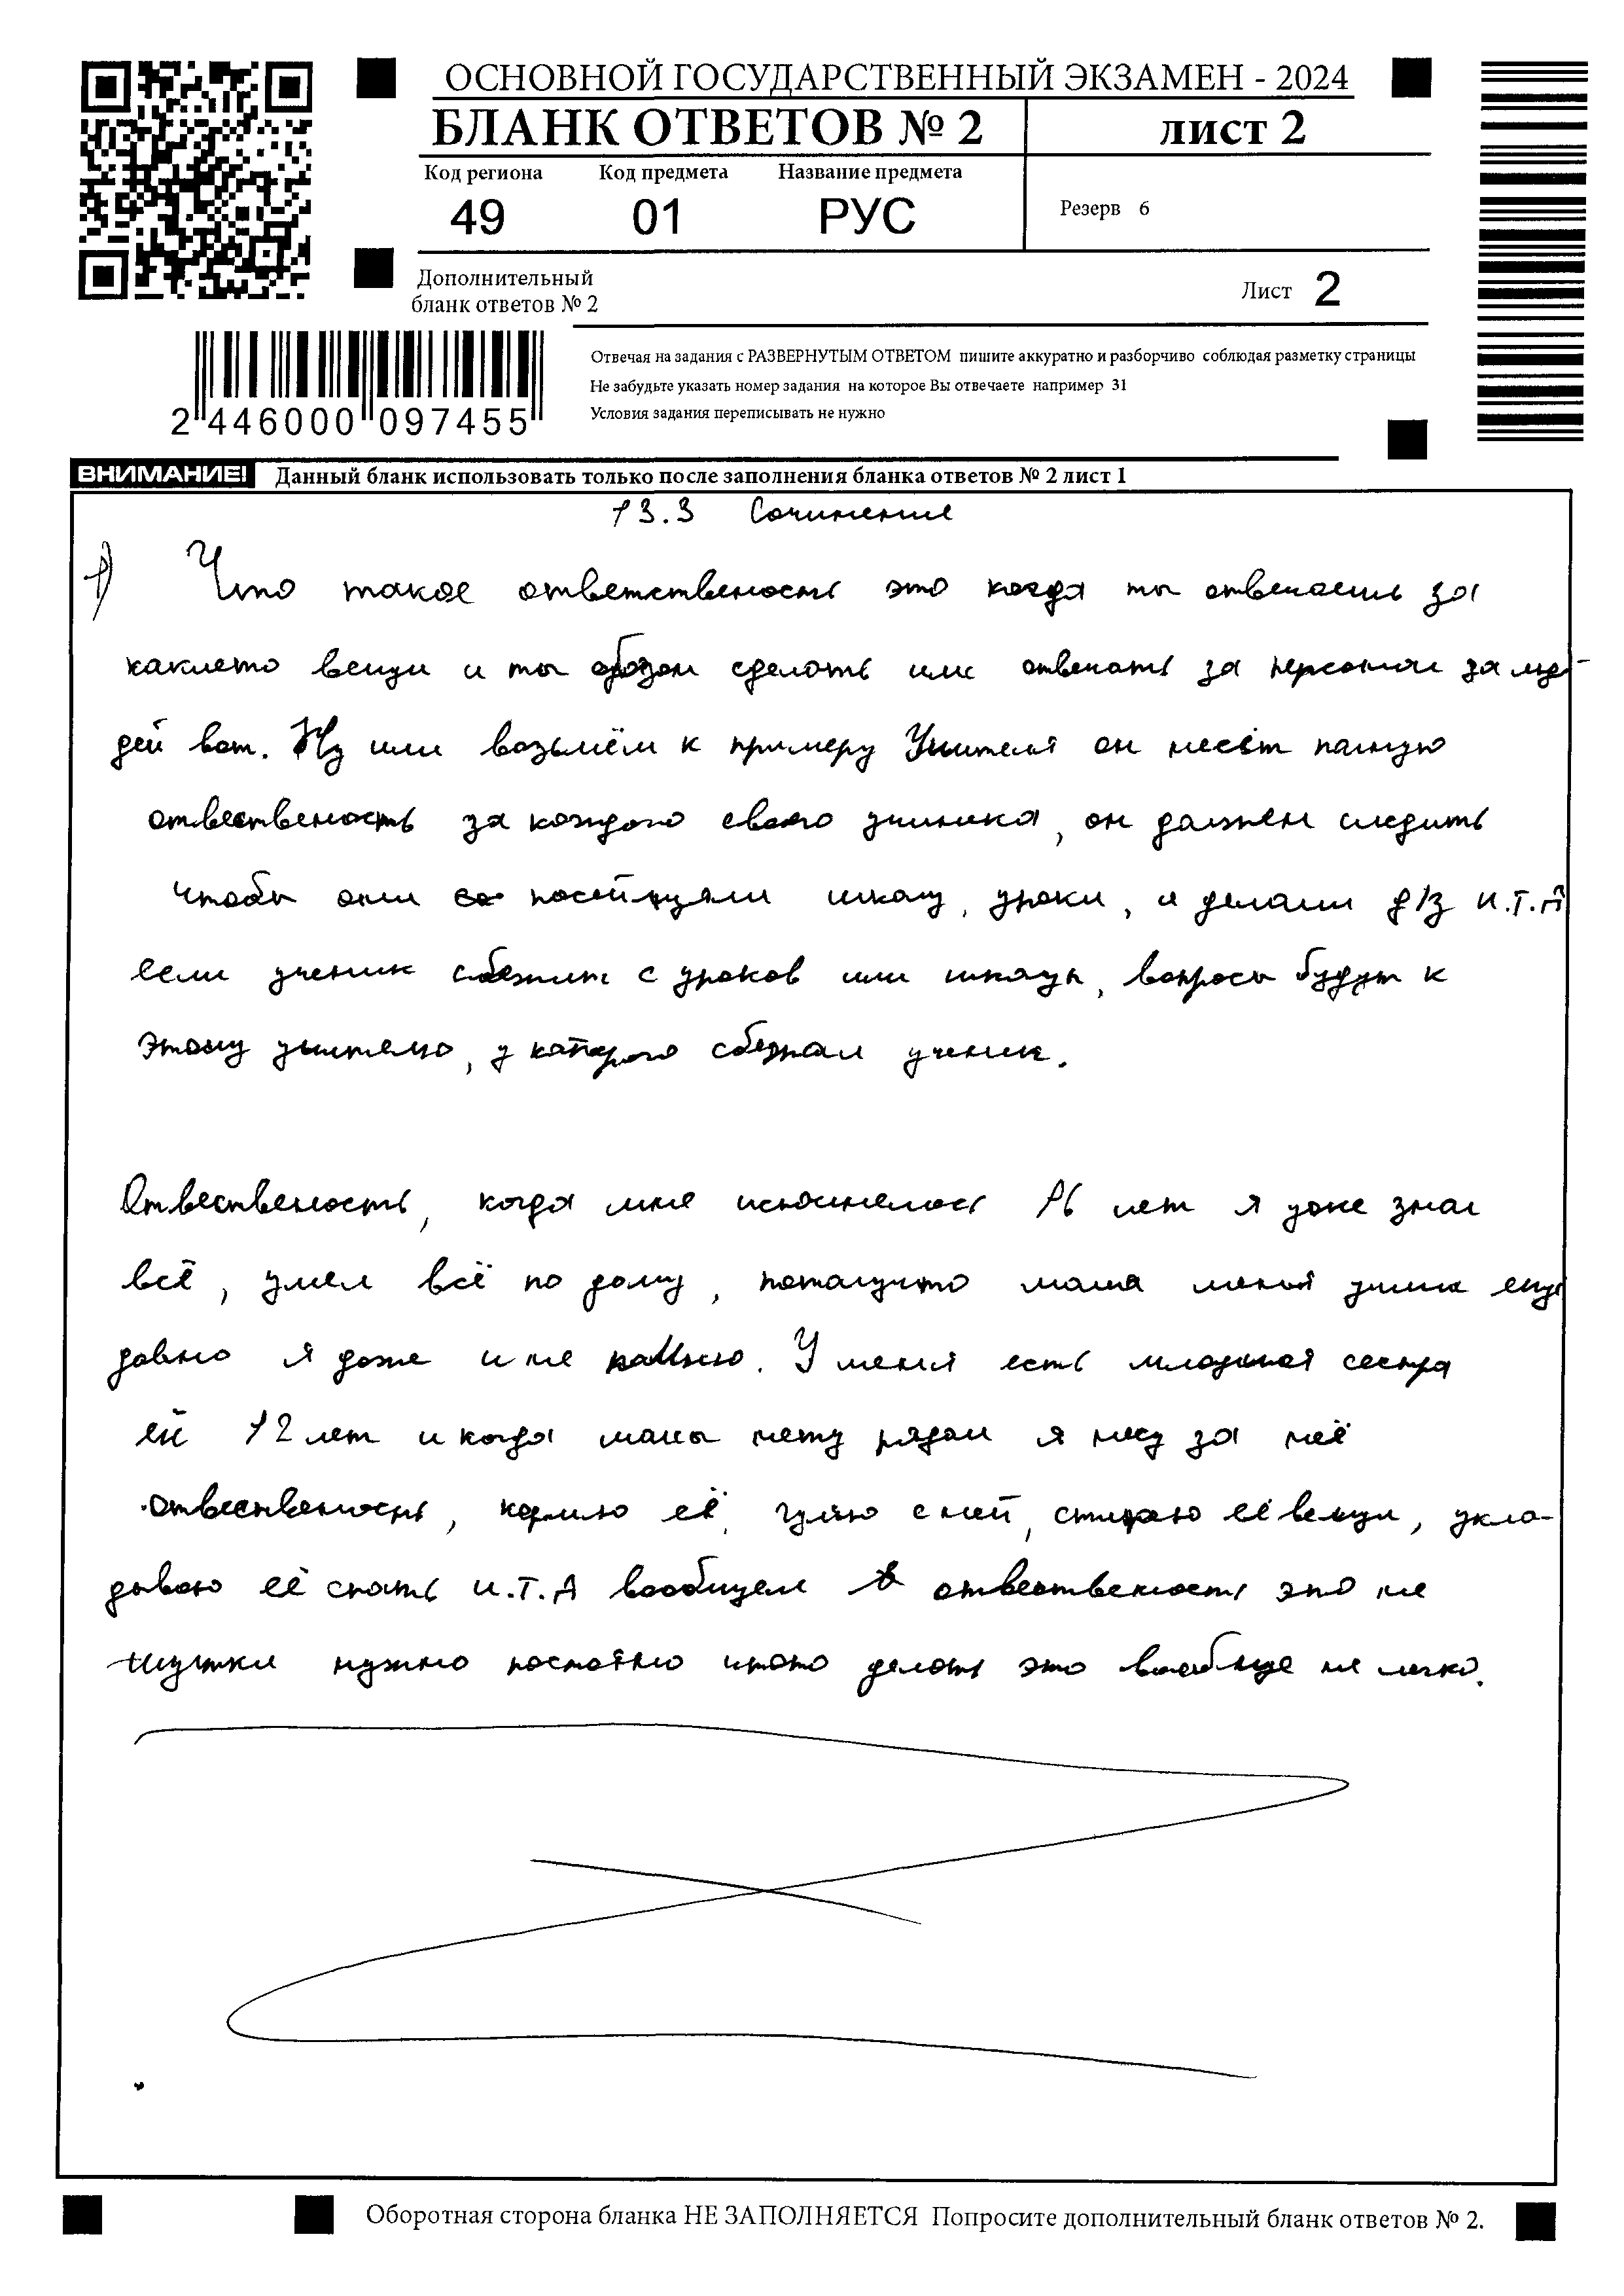 ОСНОВНОЙ ГОСУДАРСТВЕННЫЙ ЭКЗАМЕН - 2024
БЛАНК ОТВЕТОВ № 2 лист 2
Код региона Код предмета Название предмета
49 01 РУС Резерв 6
Дополнительный
бланк ответов № 2 Лист 2
Отвечая на задания с РАЗВЕРНУТЫМ ОТВЕТОМ пишите аккуратно и разборчиво соблюдая разметку страницы
Не забудьте указать номер задания на которое Вы отвечаете например 31
Условия задания переписывать не нужно
2 446000 097455
ВНИМАНИЕ! Данный бланк использовать только после заполнения бланка ответов № 2 лист 1
13.3 Сочинение
1) Что такое ответственость это когда ты отвечаешь за
каклето вещи и ты обязон сделать или отвечать за персонал за лю-
дей вот. Ну или возьмём к примеру Учителя он несёт полную
отвественость за каждого своего ученика, он должен следить
чтобы они посейщяли школу, уроки, и делали д/з и.т.п
если ученик сбежит с уроков или школы, вопросы будут к
этому учителю, у каторого сбежал ученик.
Отвественость, когда мне исполнелось 16 лет я уже знал
всё, умел всё по дому, потомучто мама меня учила ещё
давно я даже и не помню. У меня есть младшая сестра
ей 12 лет и когда мамы нету рядом я несу за неё
отвественость, кормлю её, гуляю с ней, стираю её вещи, укла-
дываю её спать и.т.д вообщем отвественость это не
шутки нужно постоянно чтото делать это вообще не легко.
Оборотная сторона бланка НЕ ЗАПОЛНЯЕТСЯ Попросите дополнительный бланк ответов № 2.